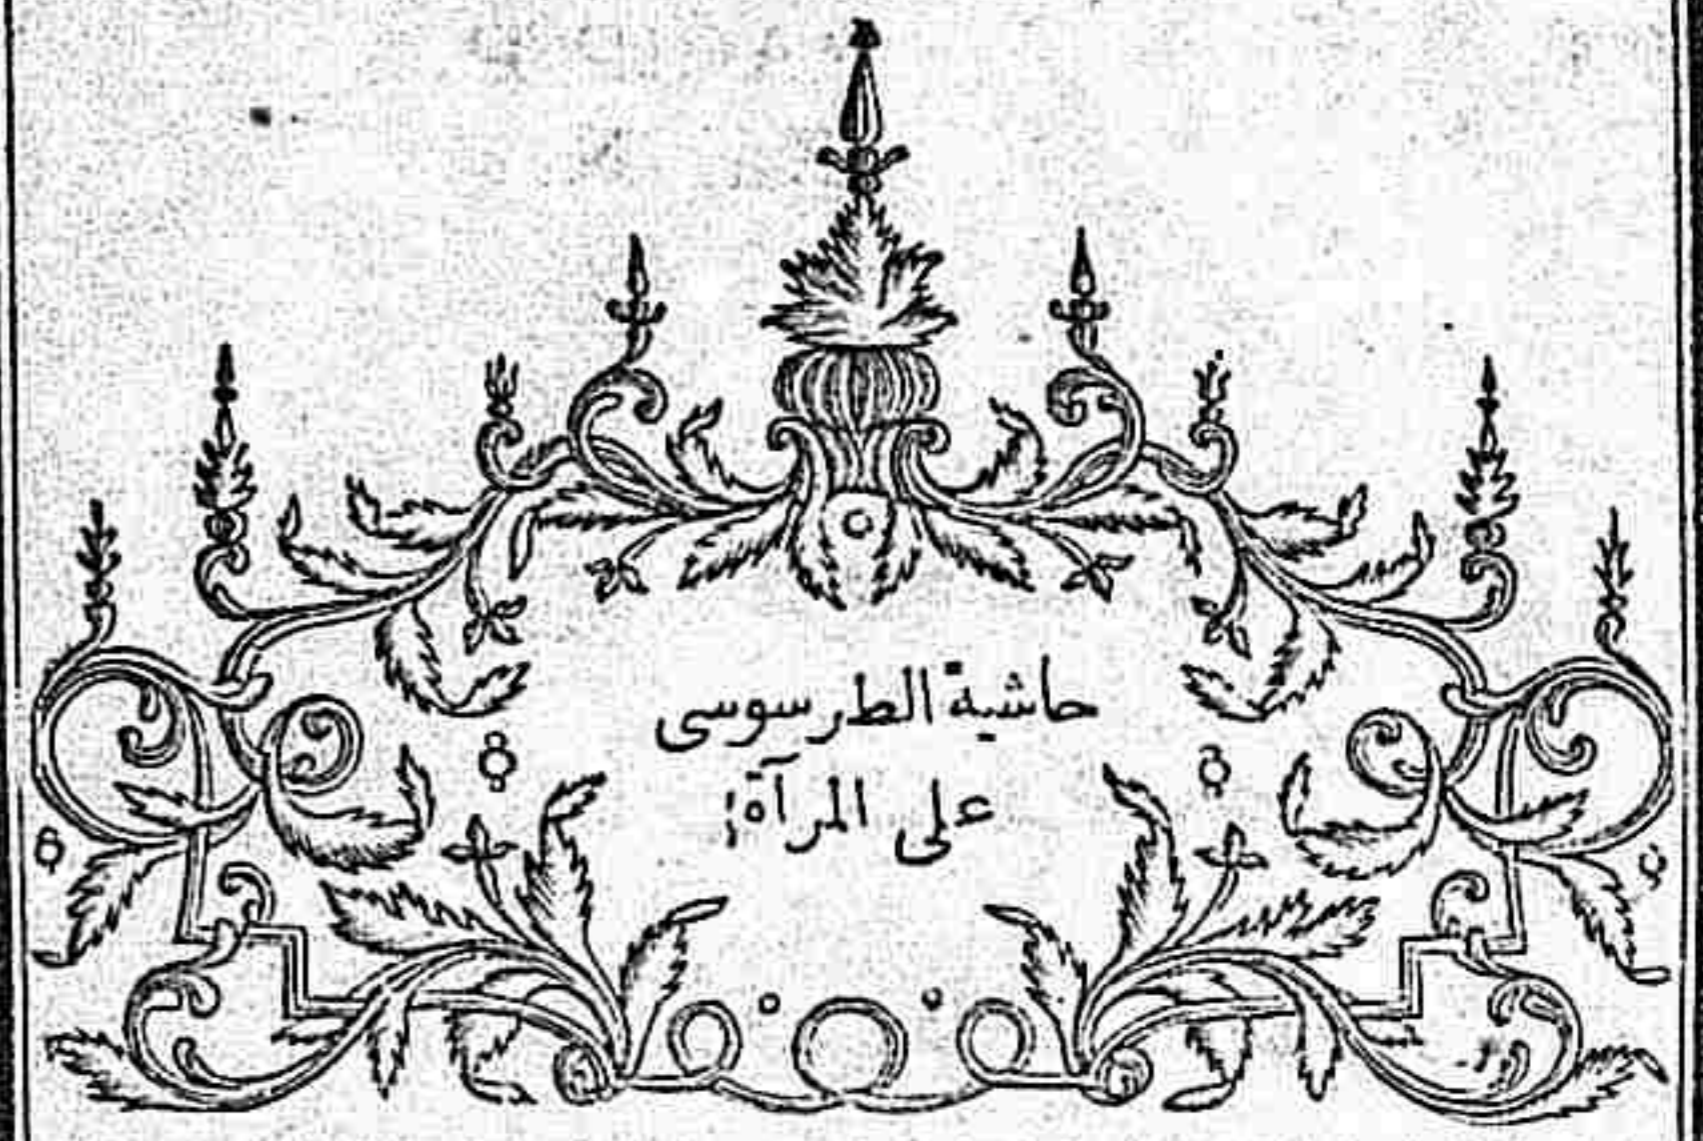 حاشية الطرسوسى
على المرآة